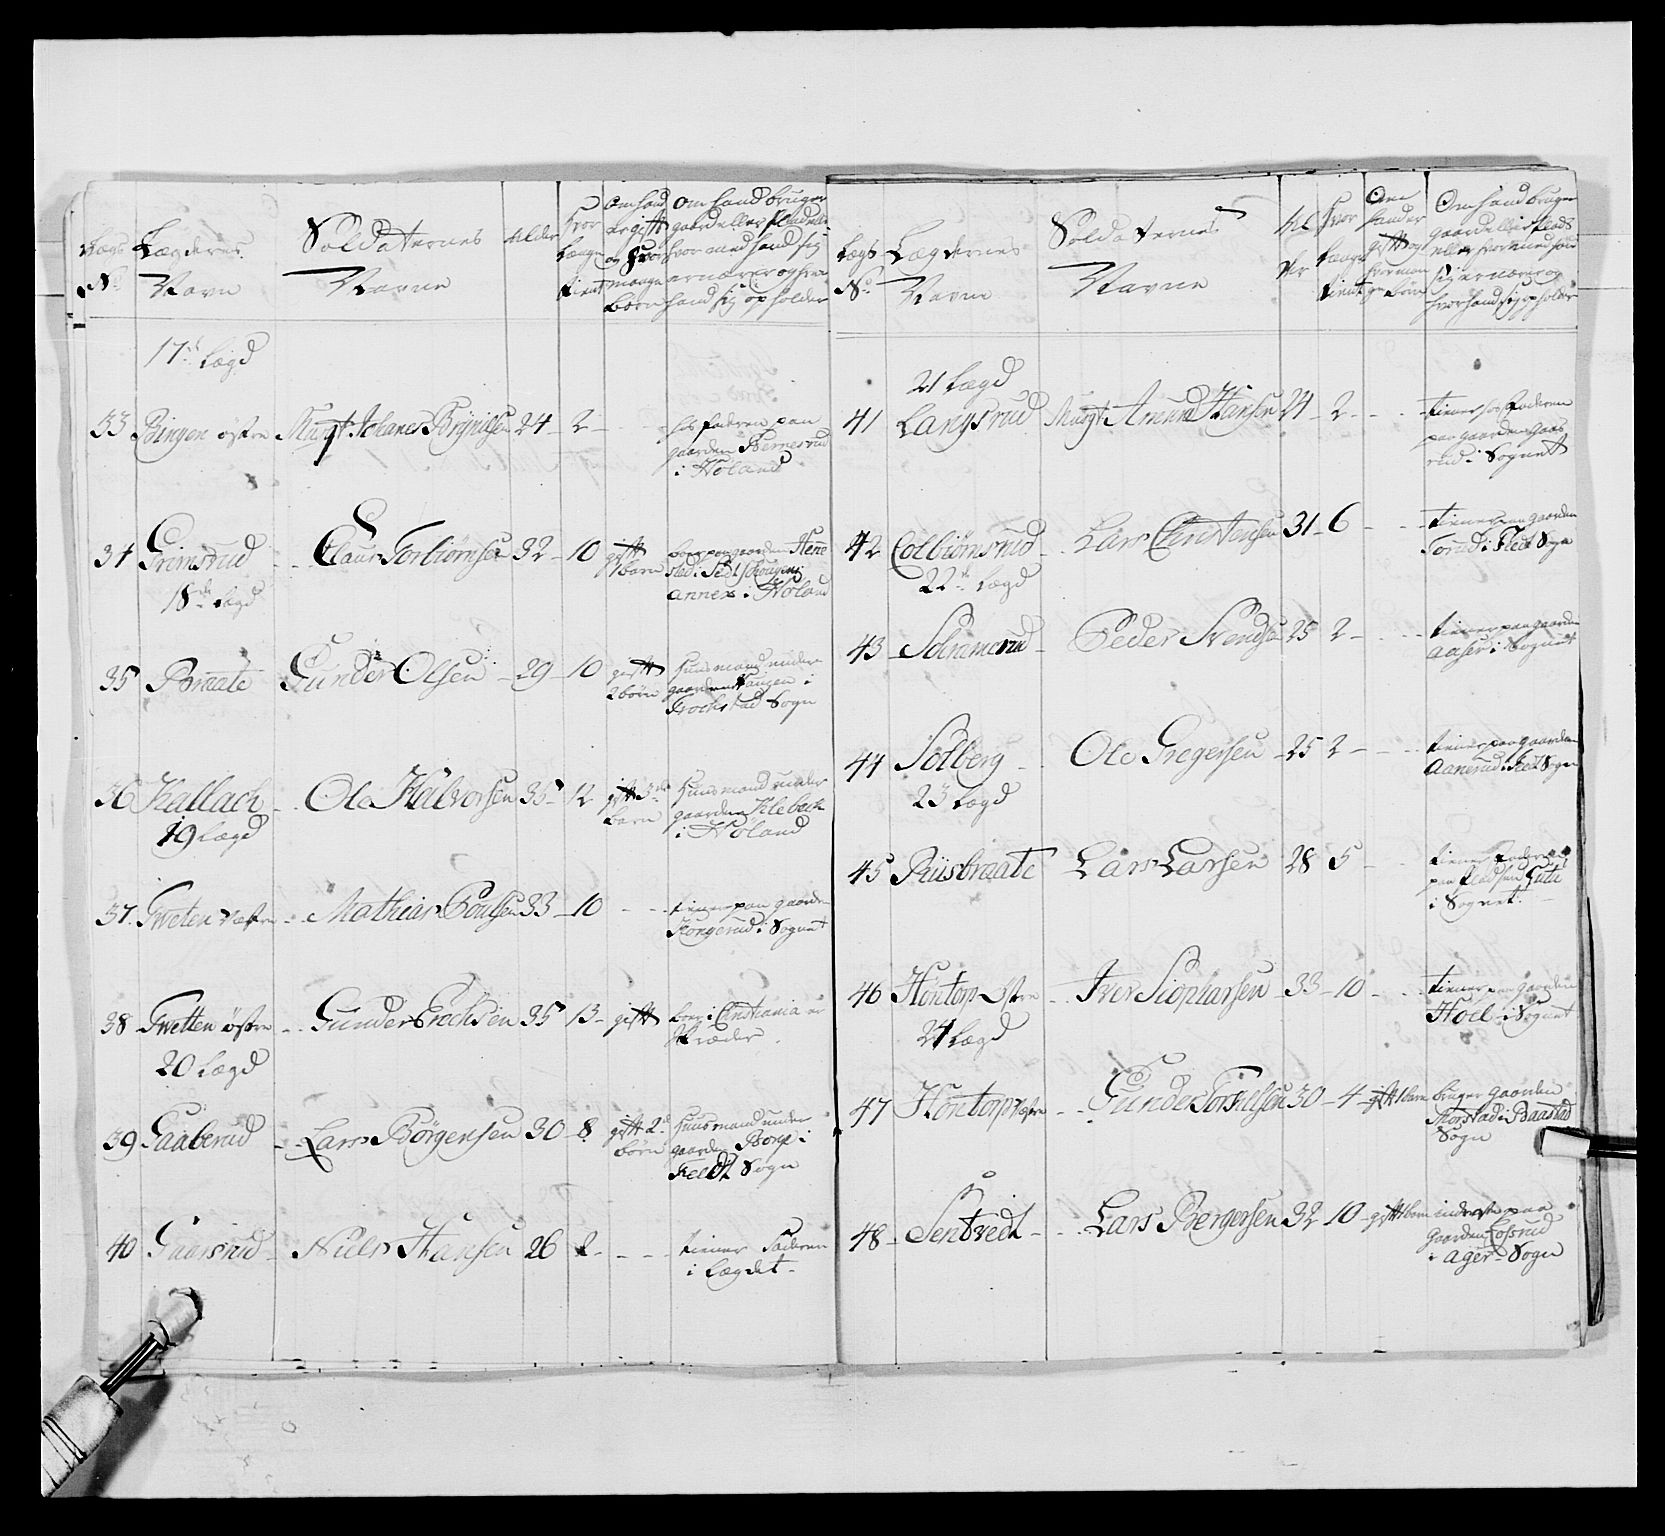 Lægs No
Lægdernes Navn
Soldaternes Navne
Alder
Hvor længe tient
Om hand er gift og hvor mange børn
Om hand bruger gaard eller Plads eller hvor med hand sig ernærer og hvor hand sig opholder
17de Lægd
33 Bingen østre Musqt Johanes Brynilsen 24 - 2 - hos faderen paa
gaarden
i Høland
34 Grimsrud Claus Torbiørnsen 32 - 10 gift
1 barn
boer paa gaarden Henne
sted i
annex i Høland
18de Lægd
35 Braate Gunder Olsen - 29 - 10 gift
2 børn
Huusmand under
gaarden Haugen i
Trochstad Sogn
36 Kallach Ole Halvorsen 35 - 12 gift 3de
børn
Huusmand under
gaarden Klebech
i Høland
19 Lægd
37 Tweten Væstre Mathias Poulsen 33 - 10 - tiener paa gaarden
Kongerud i Sognet
38 Twetten østre Gunder Erichsen 35 - 13 - gift boer i Christiania er
Skræder
20 Lægd
39 Gaaberud Lars Børgensen 30 - 8 gift 2de
børn
Huusmand under
gaarden Borge i
Feldt Sogn
40 Gaarsrud Niels Hansen 26 2 - tiener Faderen
i Lægdet
Lægs No
Lægdernes Navne
Soldaternes Navne
Alder
Hvor længe tient
Om hand er gift og hvor mange børn
Om hand bruger gaard eller Plads eller hvor med hand sig ernærer og hvor hand sig opholder
21 Lægd
41 Langsrud Musqt Amund Hansen 24 - 2 - tiener hos Faderen
paa gaarden Gaas
rud i Sognet
42 Colbiørnsrud Lars Christensen 31 - 6 - tiener paa gaarden
Sorud i Fledt Sogn
22de Lægd
43 Peder Svendsen 25 2 - tiener paa gaarden
Aaser i Sognet
44 Solberg Ole Gregersen - 25 2 - tiener paa gaarden
Aanerud i Sogn
23 Lægd
45 Riisbraate Lars Larsen 28 5 - tiener Faderen
paa Pladsen
i Sognet
46 Hontorp Østre Iver Siopharsen - 33 - 10 - tiener paa gaarden
Hoel i Sognet
24 Lægd
47 Hontorp Væstre Gunder Torkilsen 30 - 4 gift 1 barn bruger gaarden
Morstad i Baastad
Sogn
48 Sentvedt Lars Bergersen 32 - 10 - gift 1 barn inderste paa
gaarden Fossrud
i Ager Sogn